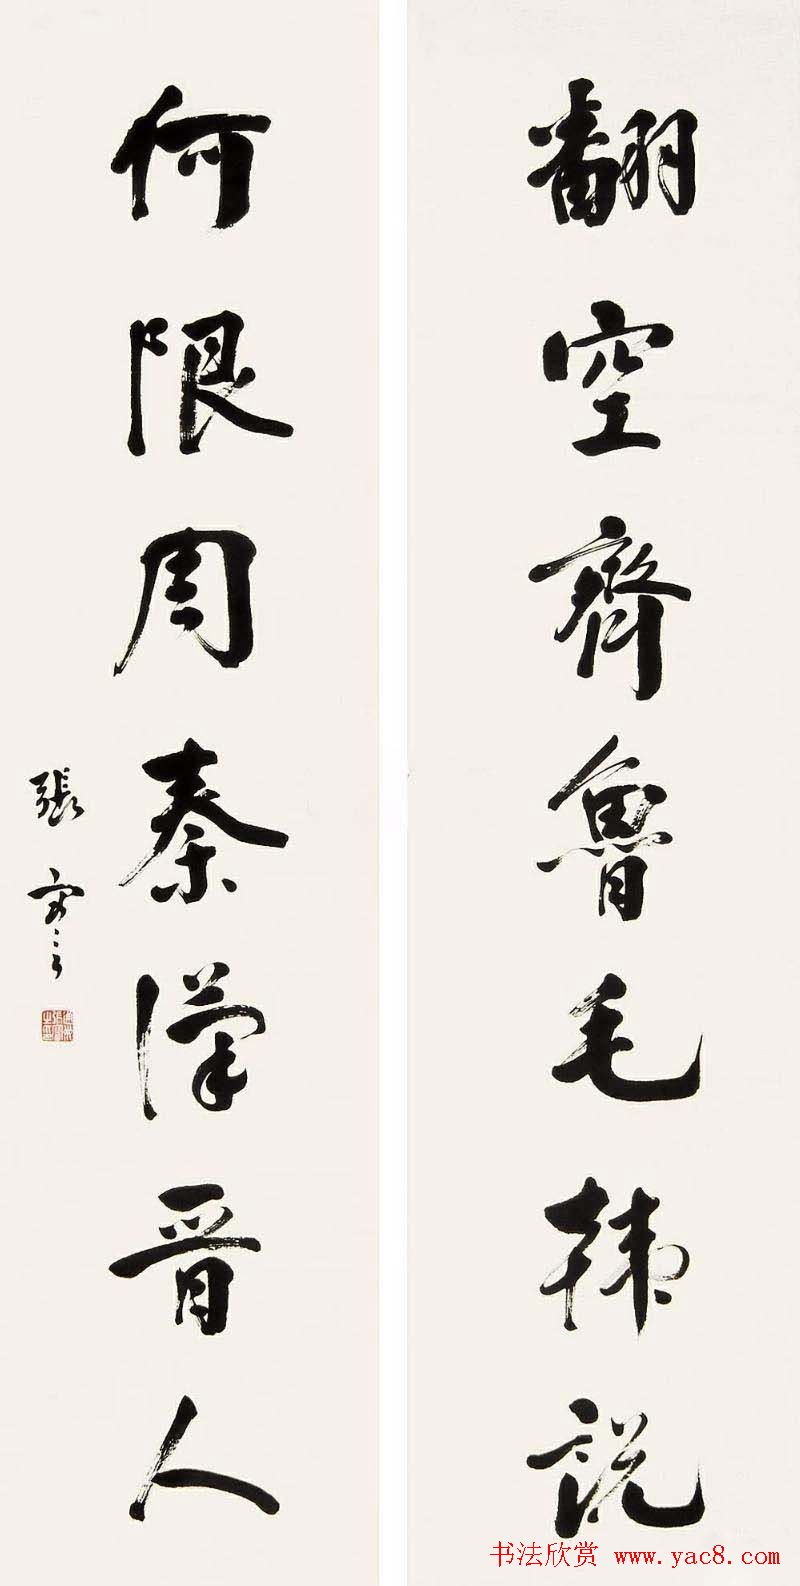 翻空齊魯毛韓說
何限周秦漢晉人
張寒
书法欣赏 www.yac8.com